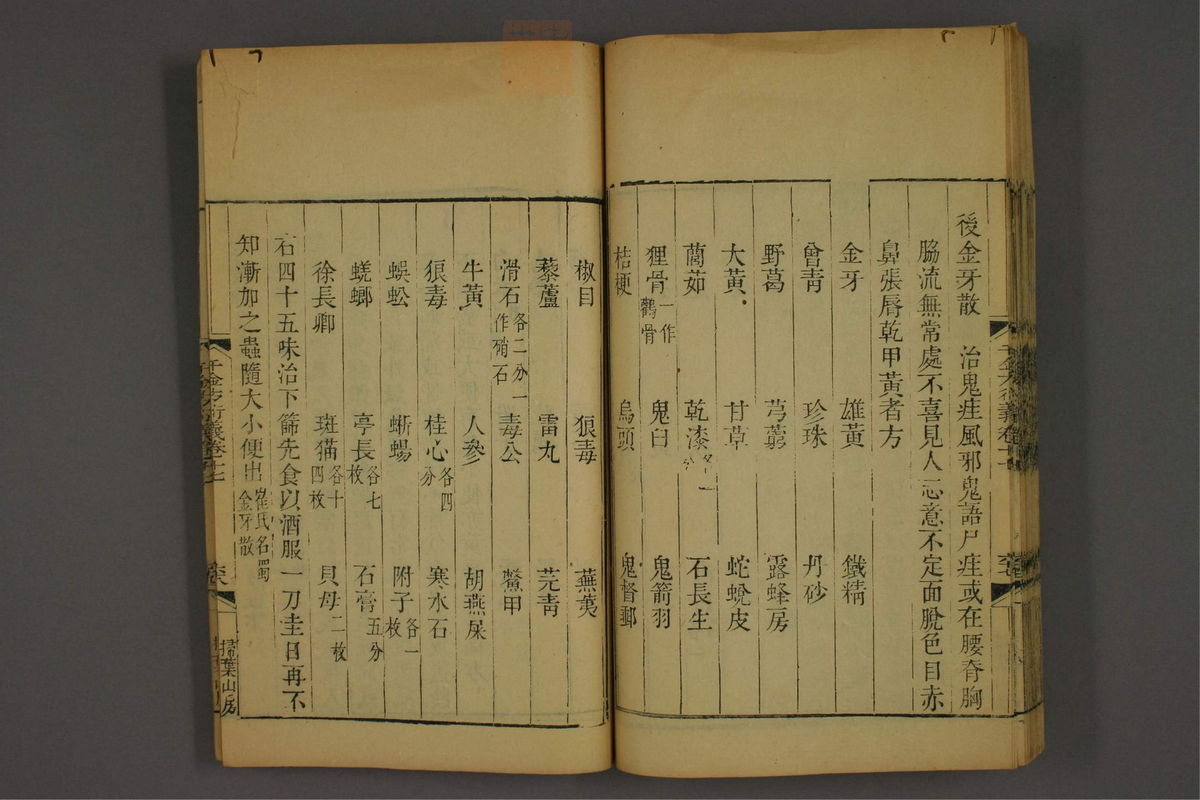 後金牙散　治鬼疰風邪鬼語尸疰或在腰脊胸
脇流無常處不喜見人志意不定面脫色目赤
鼻張脣乾甲黃者方
金牙　雄黃　鐵精
曾青　珍珠　丹砂
野葛　芎藭　露蜂房
大黃　甘草　蛇蛻皮
蕳茹　乾漆各一分　石長生
狸骨一作鸛骨　鬼臼　鬼箭羽
桔梗　烏頭　鬼督郵
椒目　狼毒　蕪荑
藜蘆　雷丸　芫青
滑石各二分一作硝石　毒公　鱉甲
牛黃　人參　胡燕屎
狼毒　桂心各四分　寒水石
蜈蚣　蜥蜴　附子各一枚
蜣螂　亭長各七枚　石膏五分
徐長卿　斑猫各十四枚　貝母二枚
右四十五味治下篩先食以酒服一刀圭日再不
知漸加之蟲隨大小便出崔氏名蜀金牙散
千金方衍義卷十二
掃葉山房